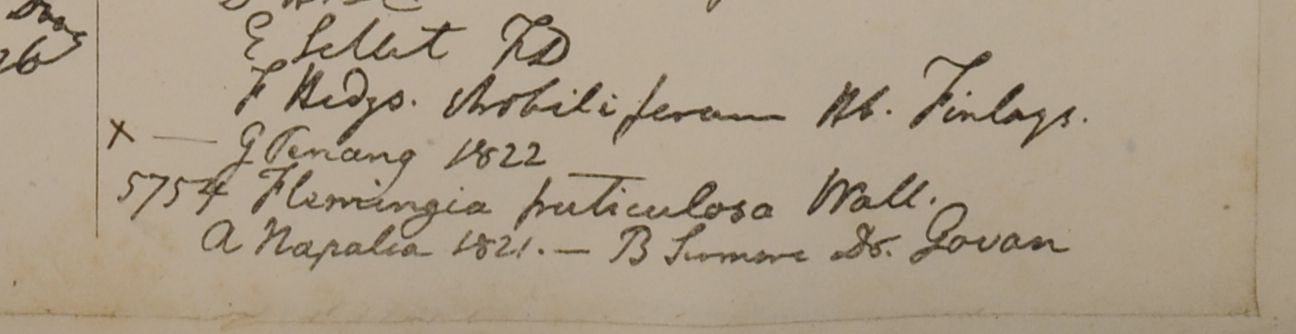 E Sellet FD
F Hedys. strobiliferum Hb. Finlays.
x — G Penang 1822
5754 Flemingia fruticulosa Wall.
A Napalia 1821. — B Sirmore Dr. Govan